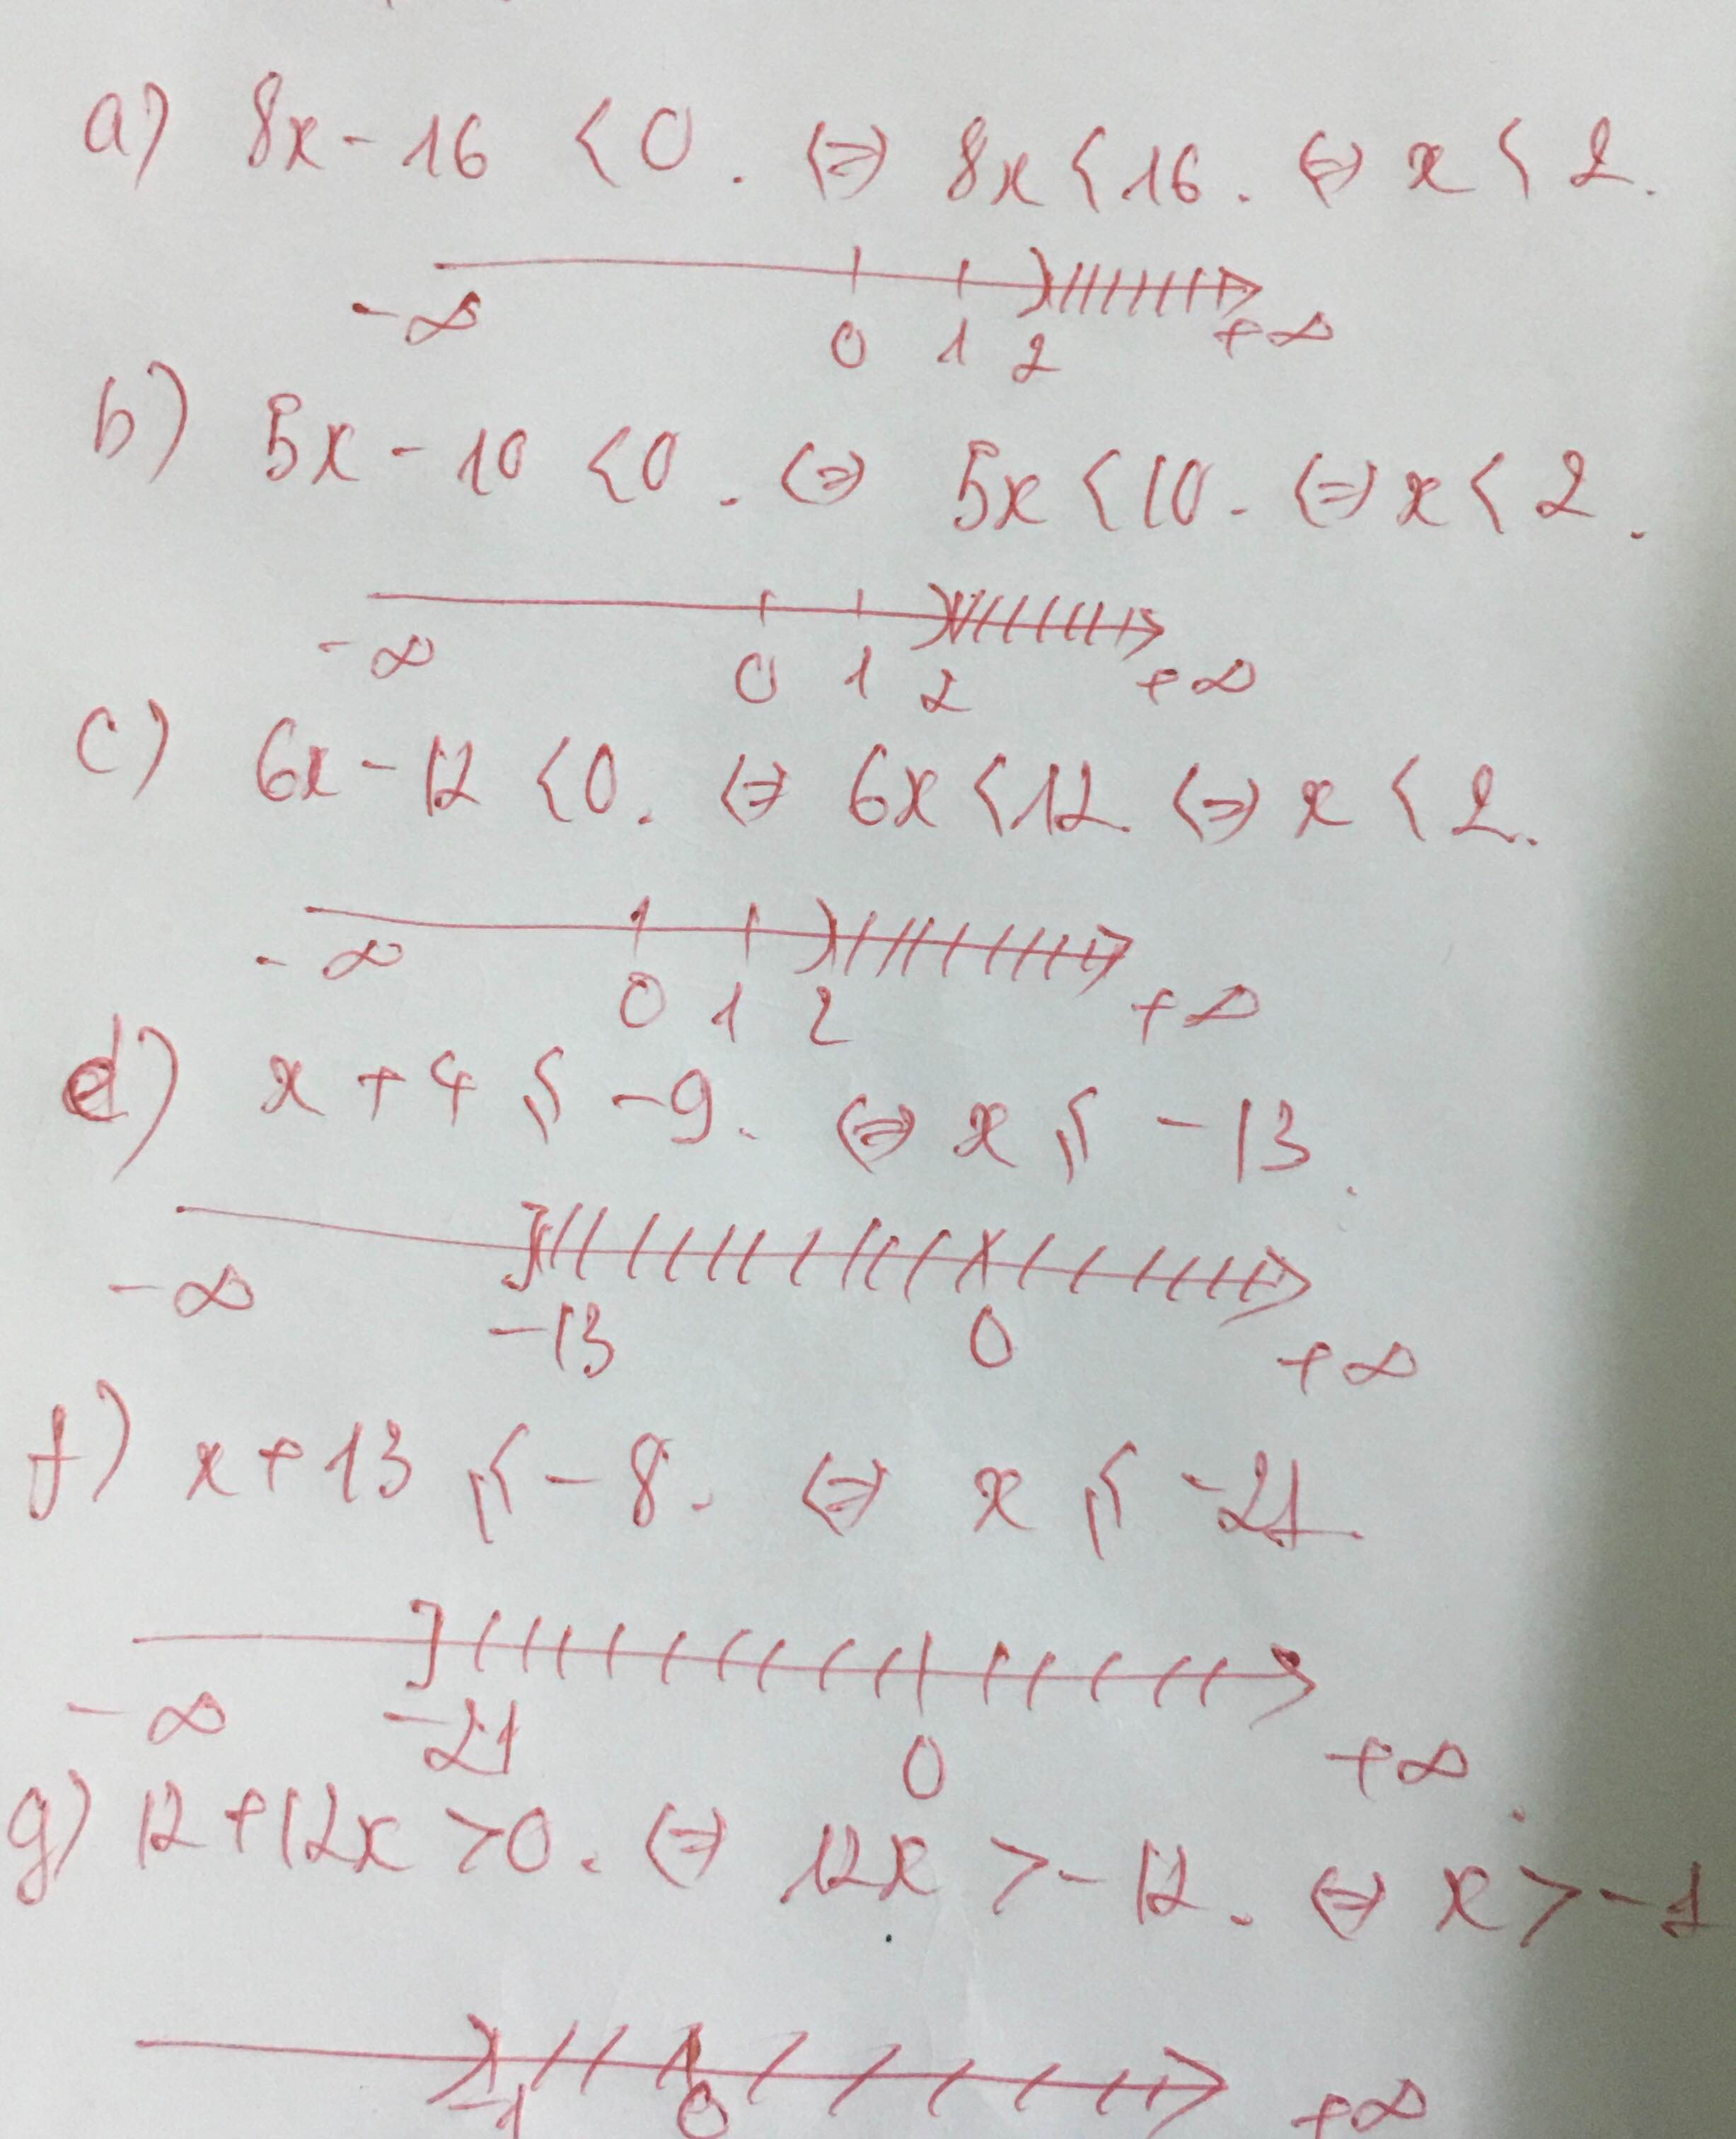 a) 8x - 16 < 0. ⇔ 8x < 16. ⇔ x < 2.
-∞ 0 1 2 +∞
b) 5x - 10 < 0. ⇔ 5x < 10. ⇔ x < 2.
-∞ 0 1 2 +∞
c) 6x - 12 < 0. ⇔ 6x < 12. ⇔ x < 2.
-∞ 0 1 2 +∞
d) x + 4 ≤ -9. ⇔ x ≤ -13.
-∞ -13 0 +∞
f) x + 13 ≤ -8. ⇔ x ≤ -21.
-∞ -21 0 +∞.
g) 12 + 12x > 0. ⇔ 12x > -12. ⇔ x > -1
-1 0 +∞